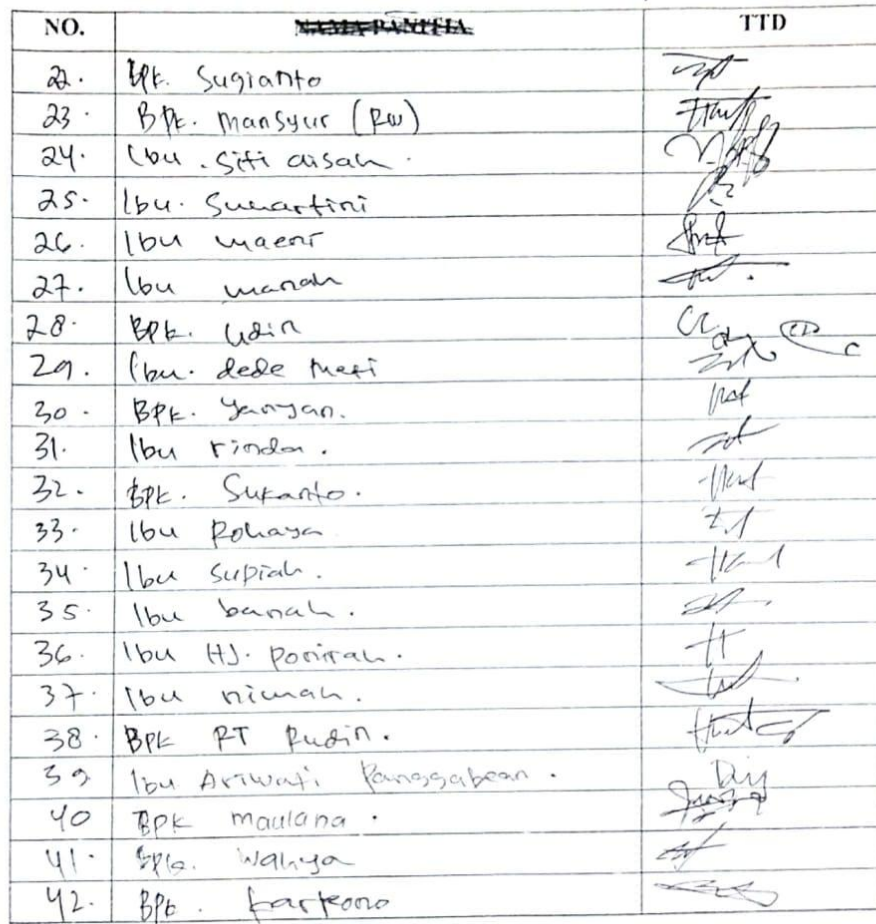 NO. NAMA PANITIA TTD
22. Bpk. Sugianto
23. Bpk. Mansyur (RW)
24. Ibu. Siti aisah.
25. Ibu. Sunartini
26. Ibu maeni
27. Ibu manah
28. Bpk. Udin
29. Ibu. dede
30. Bpk. Yanyan.
31. Ibu rinda.
32. Bpk. Sukanto.
33. Ibu Rohaya
34. Ibu supiah.
35. Ibu banah.
36. Ibu HJ.
37. Ibu nimah.
38. Bpk RT Rudin.
39 Ibu Ariwati Panggabean.
40 Bpk maulana.
41. Bpk. Wahya
42. Bpk. kartono